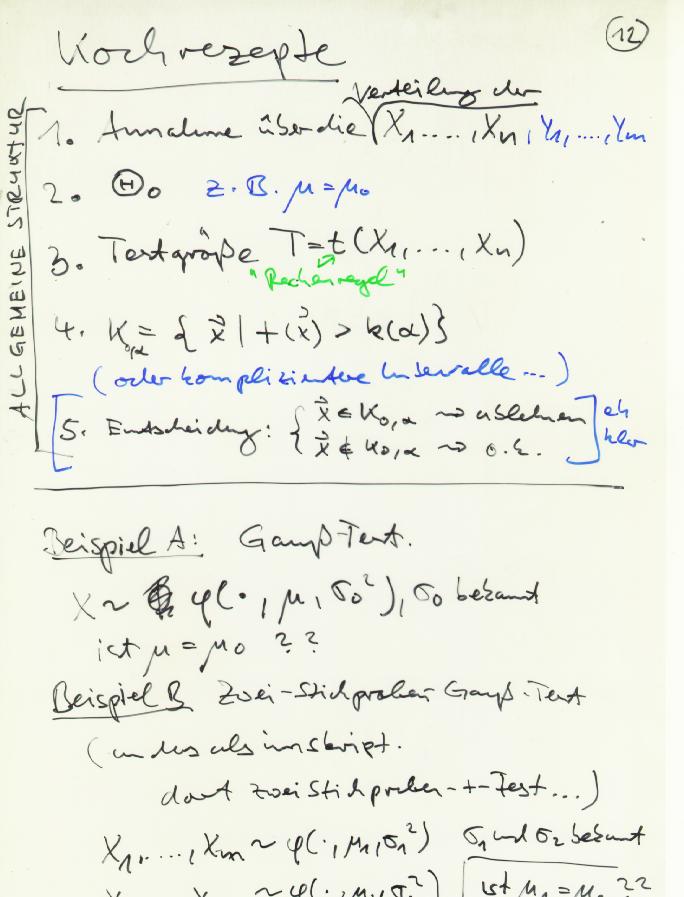 Kochrezepte
12
ALLGEMEINE STRUKTUR
Verteilung der
1. Annahme über die X₁....,Xₙ, Y₁,....,Yₘ
2. Ⓗ₀ z.B. μ=μ₀
3. Testgröße T=t(X₁,...,Xₙ)
"Rechenregel"
4. K₀,α = { x⃗ | t(x⃗) > k(α)}
(oder kompliziertere Intervalle...)
5. Entscheidung: { x⃗ ∈ K₀,α ⇝ ablehnen
x⃗ ∉ K₀,α ⇝ o.k.
eh
klar
Beispiel A: Gauß-Test.
X ~ φ(·, μ, σ₀²), σ₀ bekannt
ist μ = μ₀ ??
Beispiel B Zwei-Stichproben Gauß-Test
(anders als im Skript.
dort zwei Stichproben-t-Test...)
X₁,....,Xₘ ~ φ(·, μ₁, σ₁²) σ₁ und σ₂ bekannt
ist μ₁ = μ₂ ??